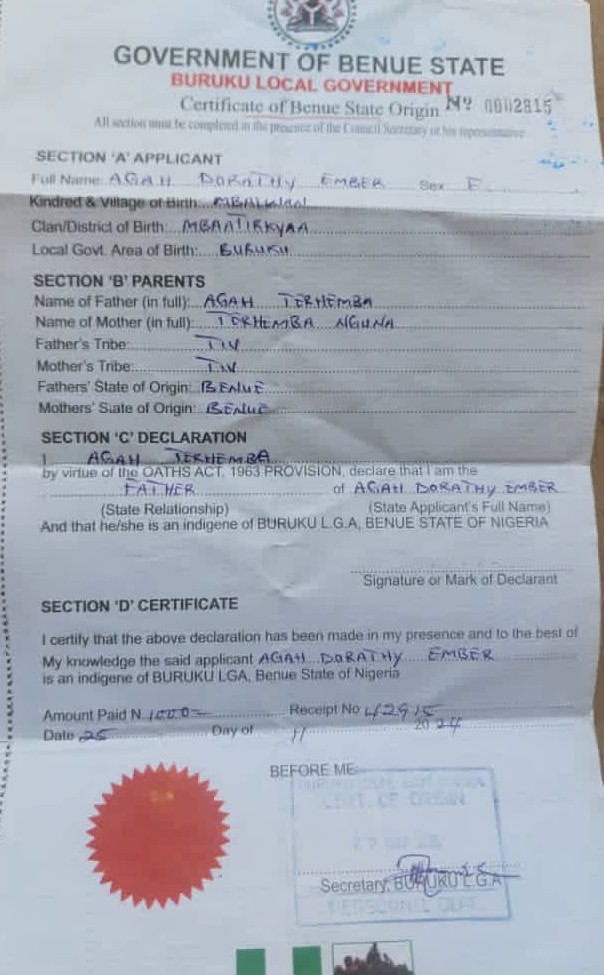 GOVERNMENT OF BENUE STATE
BURUKU LOCAL GOVERNMENT
Certificate of Benue State Origin Nº 0002815
All section must be completed in the presence of the Council Secretary or his representative
SECTION 'A' APPLICANT
Full Name: AGAH DORATHY EMBER Sex F
Kindred & Village of Birth:
Clan/District of Birth: MBAATIRKYAA
Local Govt. Area of Birth: BURUKU
SECTION 'B' PARENTS
Name of Father (in full): AGAH TERHEMBA
Name of Mother (in full): TERHEMBA NGUNA
Father's Tribe: TIV
Mother's Tribe: TIV
Fathers' State of Origin: BENUE
Mothers' State of Origin: BENUE
SECTION 'C' DECLARATION
I AGAH TERHEMBA
by virtue of the OATHS ACT, 1963 PROVISION, declare that I am the
FATHER of AGAH DORATHY EMBER
(State Relationship) (State Applicant's Full Name)
And that he/she is an indigene of BURUKU L.G.A, BENUE STATE OF NIGERIA
Signature or Mark of Declarant
SECTION 'D' CERTIFICATE
I certify that the above declaration has been made in my presence and to the best of
My knowledge the said applicant AGAH DORATHY EMBER
is an indigene of BURUKU LGA, Benue State of Nigeria
Amount Paid N 1000= Receipt No 42915
Date 25 Day of 11 2024
BEFORE ME
CERT. OF ORIGIN
Secretary, BURUKU L.G.A
PERSONNEL DEPT.